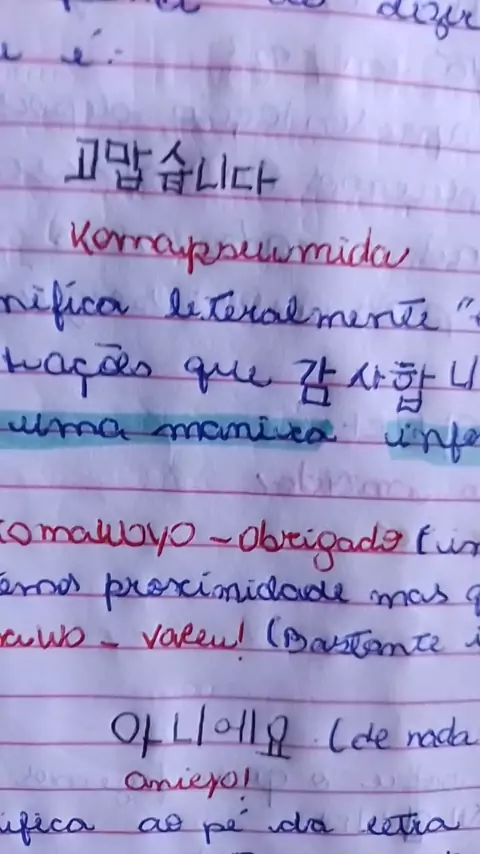 dizer
é:
고맙습니다
Komapseumnida
nifica literalmente "
tuações que 감사합니
uma maniera infe
omawoyo - obrigado (in
emos proximidade mas q
awo - valeu! (Bastante i
아니에요 (de nada
anieyo!
ifica ao pé da letra